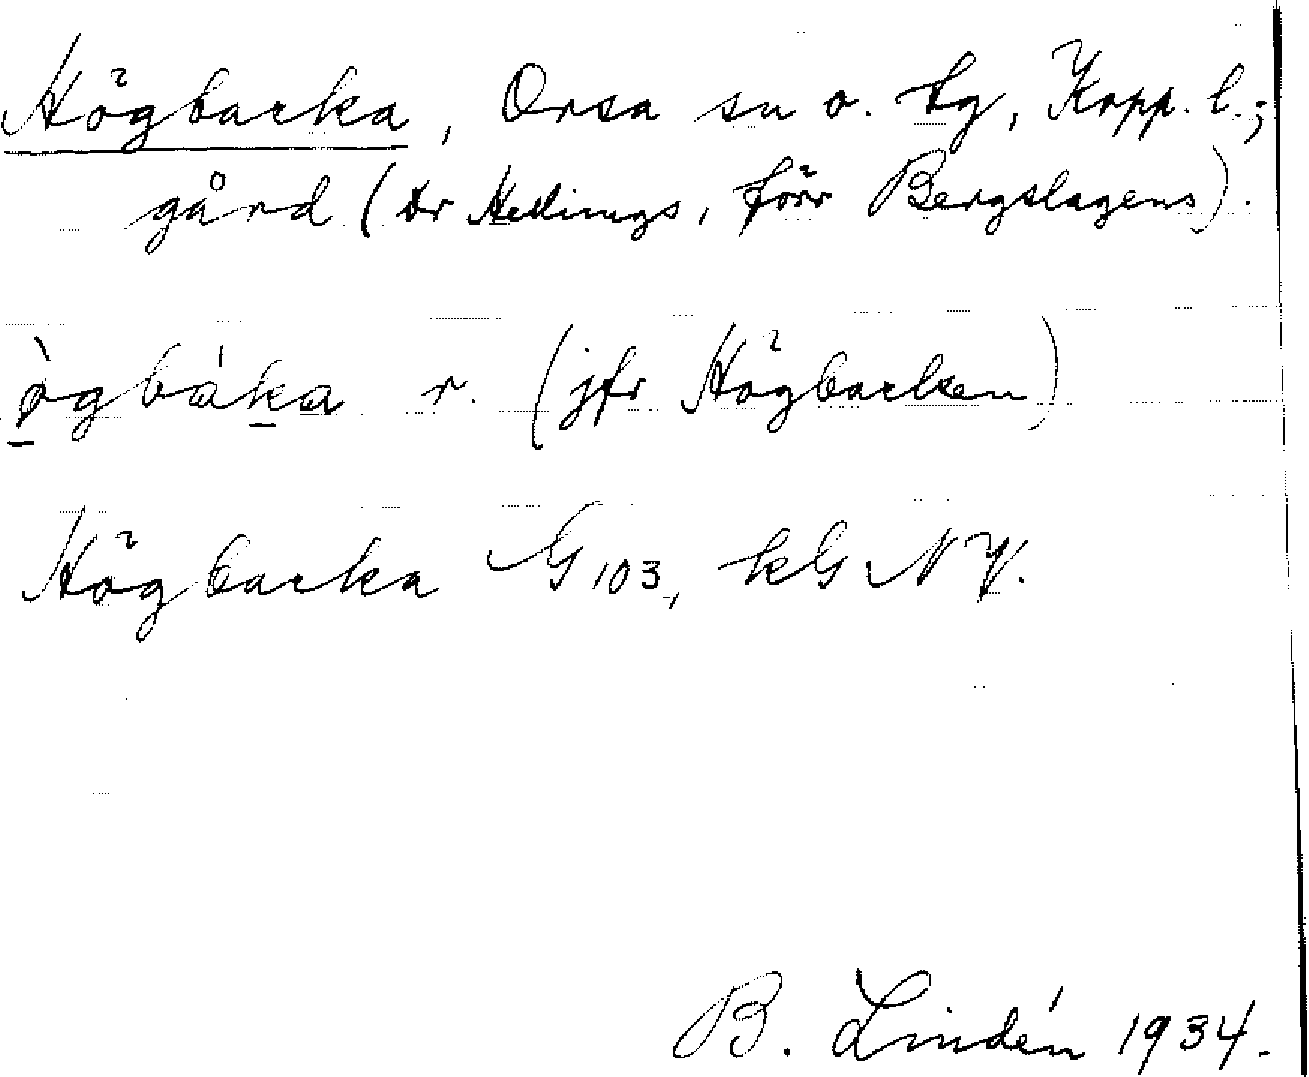 Högbacka, Orsa sn o. tg, Kopp. l.;
gård (Dr Hellings, förr Bergslagens).
ògbáka r. (jfr Högbacken)
Högbacka G 103, kG NV.
B. Lindén 1934.